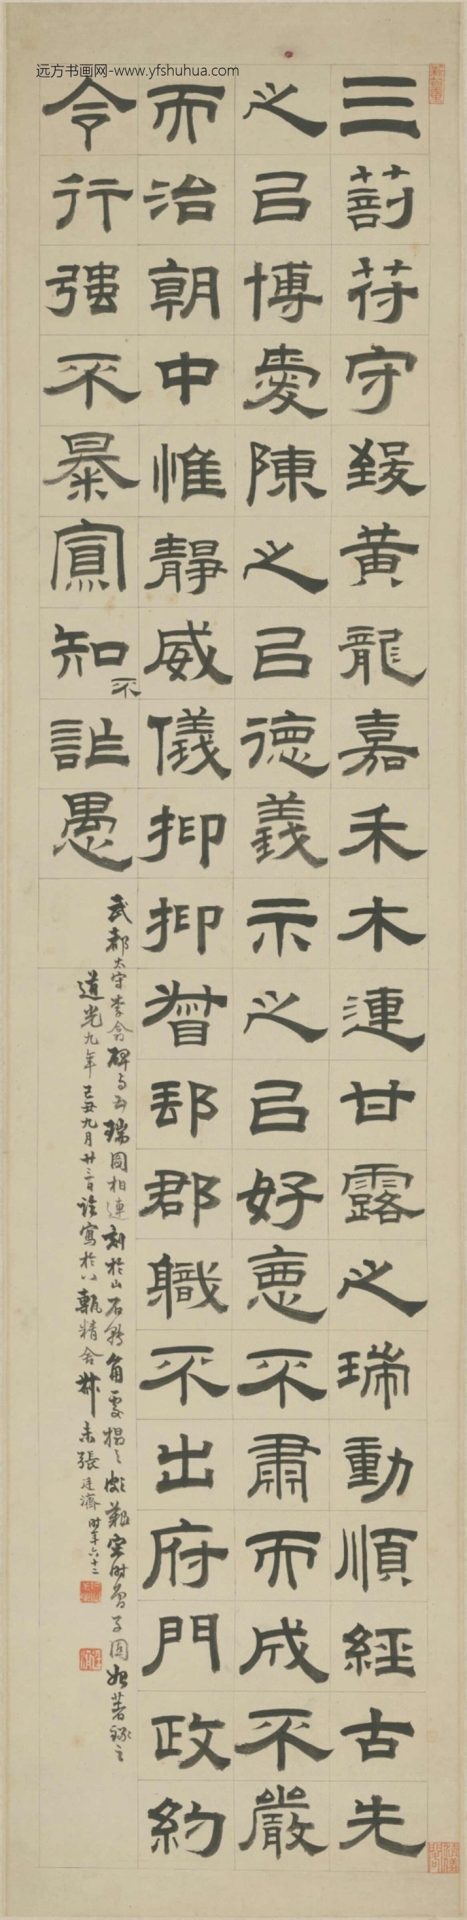 远方书画网-www.yfshuhua.com
三剖符守致黃龍嘉禾木連甘露之瑞動順經古先
之㠯博愛陳之㠯德義示之㠯好惡不肅而成不嚴
而治朝中惟靜威儀抑抑督郵郡職不出府門政約
令行强不暴寡知不詐愚
武都太守李翕碑与五瑞圖相連刻於山石角處搨之艱宋時曾子固始著錄之
道光九年己丑九月廿三日寫於八甎精舍 叔未張廷濟時年六十二